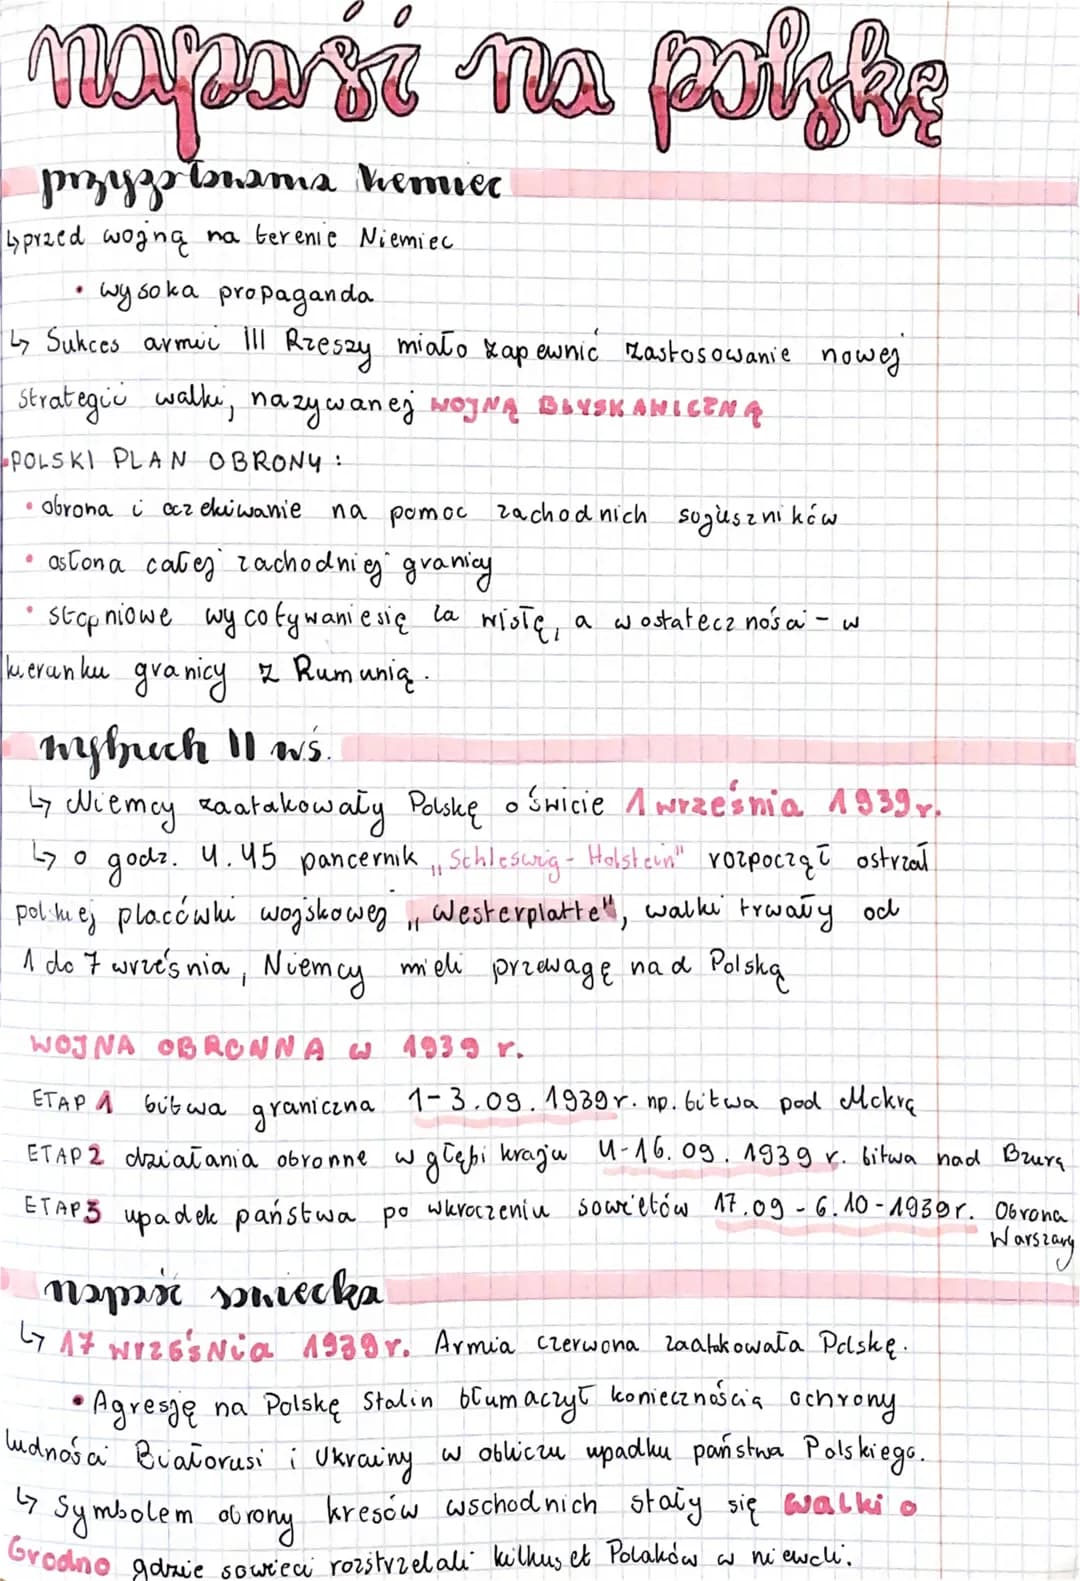 napaść na polskę
przygotowania Niemiec
↳ przed wojną na terenie Niemiec
• wysoka propaganda
↳ Sukces armii III Rzeszy miało zapewnić zastosowanie nowej
strategii walki, nazywanej WOJNĄ BŁYSKAWICZNĄ
•POLSKI PLAN OBRONY:
• obrona i oczekiwanie na pomoc zachodnich sojuszników
• osłona całej zachodniej granicy
• stopniowe wycofywanie się za wisłę, a w ostateczności - w
kierunku granicy z Rumunią.
wybuch II wś.
↳ Niemcy zaatakowały Polskę o świcie 1 września 1939r.
↳ o godz. 4.45 pancernik „Schleswig-Holstein" rozpoczął ostrzał
polskiej placówki wojskowej „Westerplatte", walki trwały od
1 do 7 września, Niemcy mieli przewagę nad Polską
WOJNA OBRONNA w 1939 r.
ETAP 1 bitwa graniczna 1-3.09.1939r. np. bitwa pod Mokrą
ETAP 2 działania obronne w głębi kraju 4-16.09.1939 r. bitwa nad Bzurą
ETAP 3 upadek państwa po wkroczeniu sowietów 17.09-6.10-1939r. Obrona
Warszawy
napaść sowiecka
↳ 17 września 1939r. Armia czerwona zaatakowała Polskę.
• Agresję na Polskę Stalin tłumaczył koniecznością ochrony
ludności Białorusi i Ukrainy w obliczu upadku państwa Polskiego.
↳ Symbolem obrony kresów wschodnich stały się walki o
Grodno gdzie sowieci rozstrzelali kilkuset Polaków w niewoli.